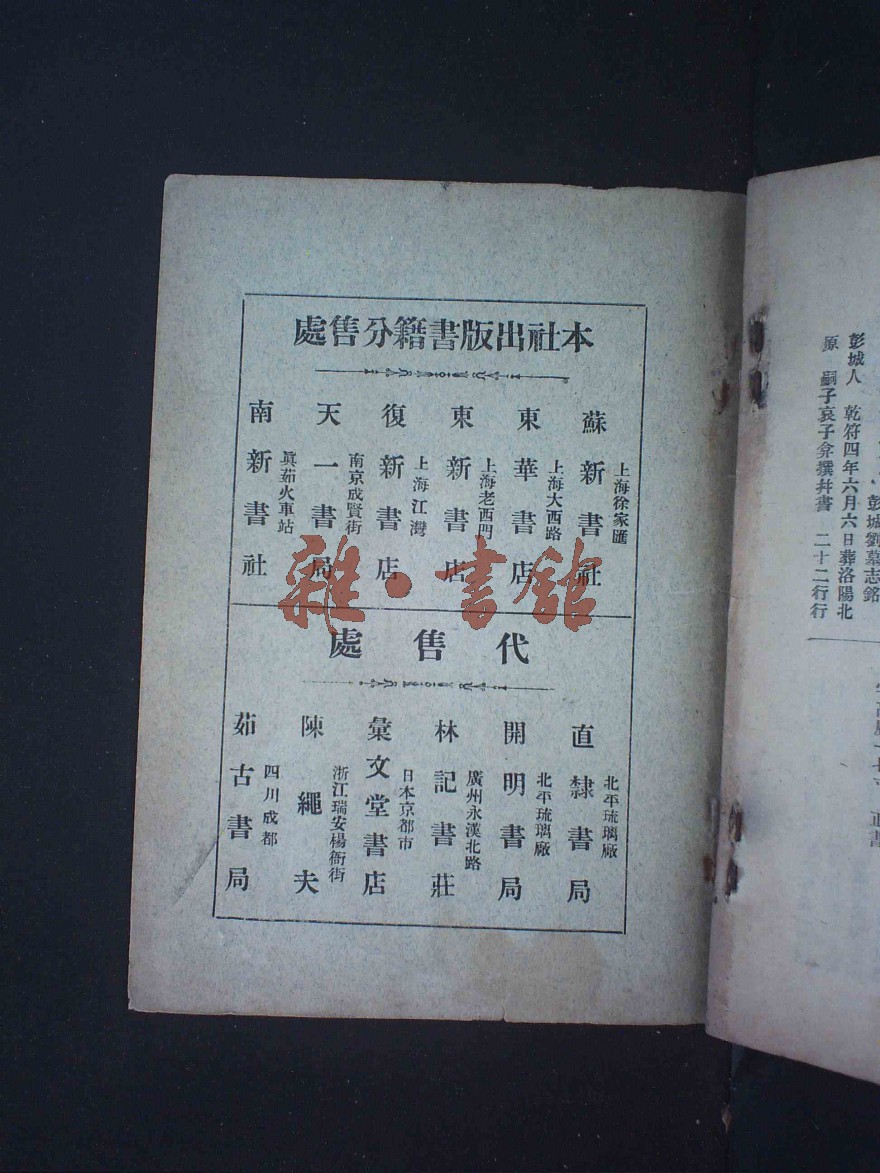 本社出版書籍分售處
蘇新書社
上海徐家匯
東華書店
上海大西路
東新書店
上海老西門
復新書店
上海江灣
天一書局
南京成賢街
南新書社
眞茹火車站
代售處
直隸書局
北平琉璃廠
開明書局
北平琉璃廠
林記書莊
廣州永漢北路
彙文堂書店
日本京都市
陳繩夫
浙江瑞安楊衙街
茹古書局
四川成都
雜·書館
彭城劉墓志銘
彭城人 乾符四年六月六日葬洛陽北
原 嗣子哀子弇撰幷書 二十二行行